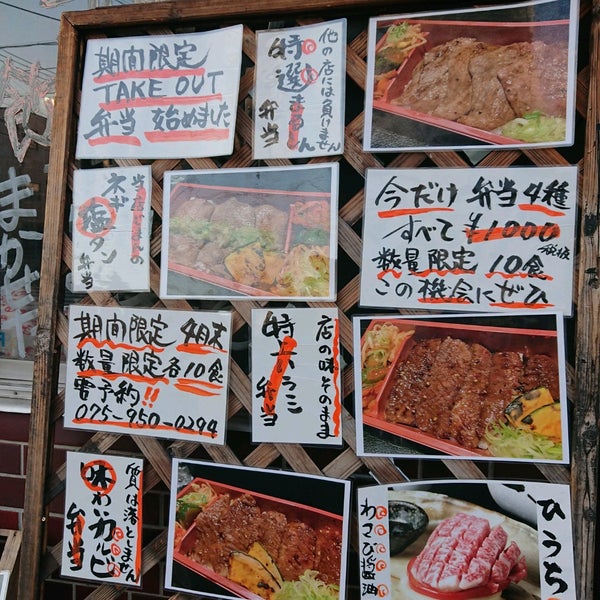 期間限定
TAKE OUT
弁当 始めました
他の店には負けません
特選まるしん
弁当
当店一ばんの
ネギ塩タン
弁当
今だけ 弁当4種
すべて ¥1000
税抜
数量限定 10食
この機会にぜひ
期間限定 4月末
数量限定各10食
電予約!!
075-950-0294
店の味そのまま
特大うこ
弁当
質は落としません
味わいカルビ
弁当
ひうち
わさび醤油